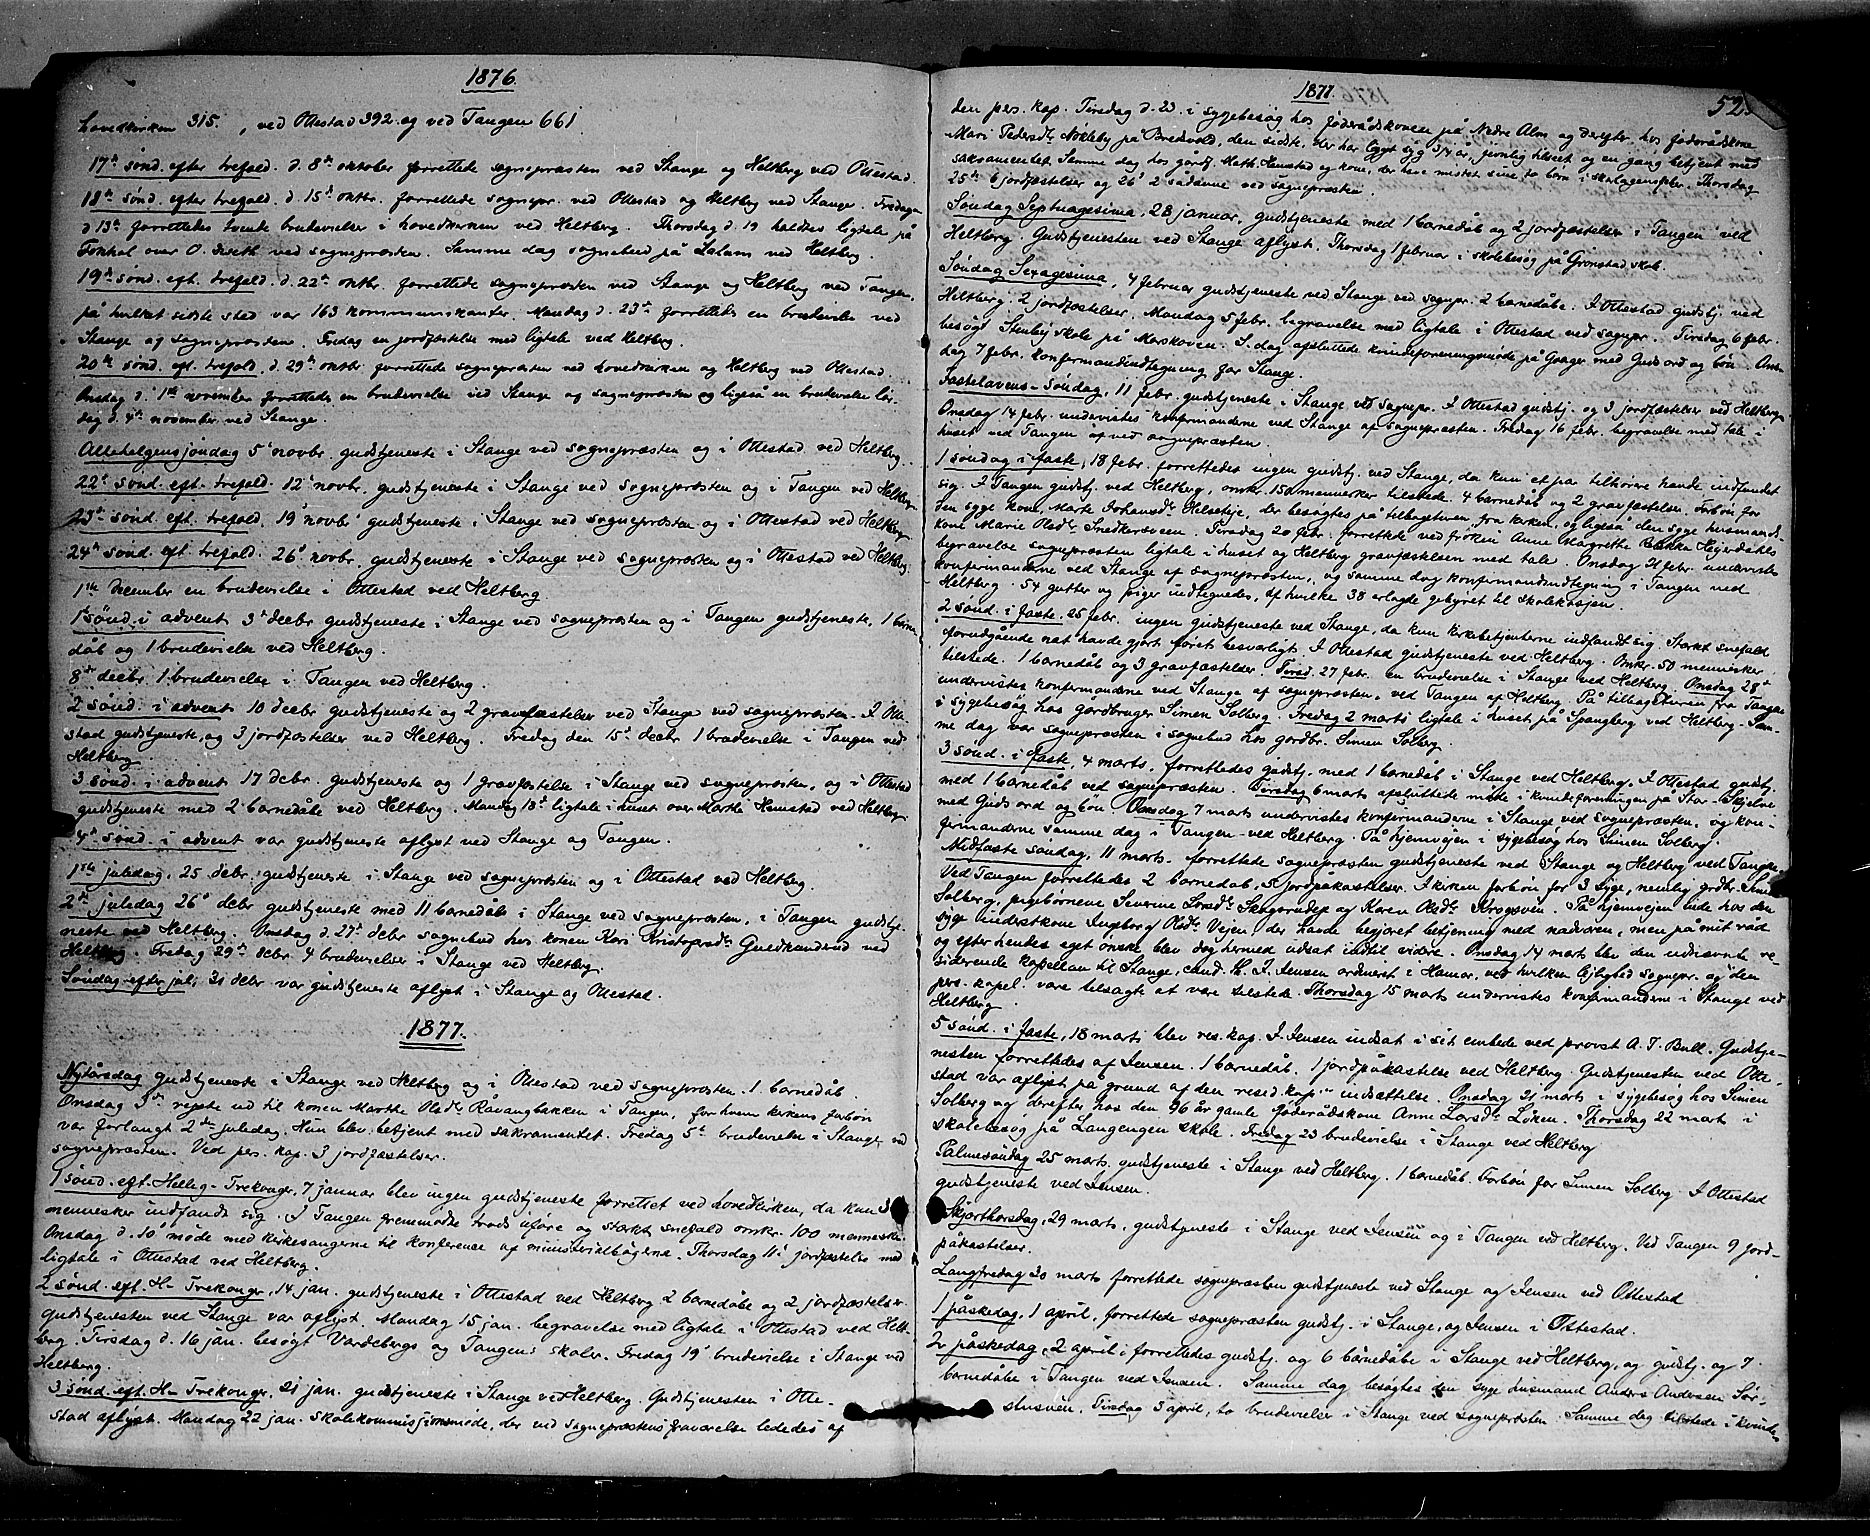 1876.
hovedkirken 315. , ved Ottestad 392 og ved Tangen 661.
17de sønd. efter trefold. d. 8de oktober forrettede sognepræsten ved Stange og Heltberg ved Ottestad.
18de sønd. efter trefold. d. 15de oktbr. forrettede sognepr. ved Ottestad og Heltberg ved Stange. Fredagen
d 13de forrettedes tvende brudevielser i hovedkirken ved Heltberg. Thorsdag d. 19 holdtes ligtale på
Fokhol over O. ved sognepræsten. Samme dag sognebud på ved Heltberg.
19de sønd. eft. trefold. d. 22de oktbr. forrettede sognepræsten ved Stange og Heltberg ved Tangen,
på hvilket sidste sted var 163 kommunikanter. Mandag d. 23de forrettedes en brudevielse ved
Stange af sognepræsten. Fredag en jordfæstelse med ligtale ved Heltberg.
20de sønd. eft. trefold. d. 29de oktbr. forrettede sognepræsten ved hovedkirken og Heltberg ved Ottestad.
Onsdag d. 1ste november forrettedes en brudevielse ved Stange af sognepræsten og ligeså en brudevielse lør-
dag d. 4de november ved Stange.
Allehelgenssøndag 5te novbr. gudstjeneste i Stange ved sognepræsten og i Ottestad ved Heltberg.
22de sønd. eft. trefold. 12te novbr. gudstjeneste i Stange ved sognepræsten og i Tangen ved Heltberg.
23de sønd. eft. trefold. 19de novbr gudstjeneste i Stange ved sognepræsten og i Ottestad ved Heltberg.
24de sønd. eft. trefold. 26de novbr. gudstjeneste i Stange ved sognepræsten og i Ottestad ved Heltberg.
1ste December en brudevielse i Ottestad ved Heltberg.
1ste sønd. i advent 3de decbr gudstjeneste i Stange ved sognepræsten og i Tangen gudstjeneste, 1 barne
dåb og 1 brudevielse ved Heltberg.
8de decbr. 1 brudevielse i Tangen ved Heltberg.
2 sønd. i advent 10 decbr gudstjeneste og 2 gravfæstelser ved Stange ved sognepræsten. I Otte
stad gudstjeneste, og 3 jordfæstelser ved Heltberg. Fredag den 15de decbr 1 brudevielse i Tangen ved
Heltberg.
3 sønd. i advent 17 decbr. gudstjeneste og 1 gravfæstelse i Stange ved sognepræsten, og i Ottestad
gudstjeneste med 2 barnedåbe ved Heltberg. Mandag 18de ligtale i huset over Marthe Hemstad ved Heltberg.
4de sønd. i advent var gudstjeneste aflyst ved Stange og Tangen.
1ste juledag, 25 decbr gudstjeneste i Stange ved sognepræsten og i Ottestad ved Heltberg.
2de juledag 26de decbr gudstjeneste med 11 barnedåb i Stange ved sognepræsten, i Tangen gudstje-
neste ved Heltberg. Onsdag d. 27de decbr sognebud hos konen Kari Kristofersdtr ved
Heltberg. Fredag 29de decbr. 4 brudevielser i Stange ved Heltberg.
Søndag efter jul, 31 decbr var gudstjeneste aflyst i Stange og Ottestad.
1877.
Nytårsdag gudstjeneste i Stange ved Heltberg og i Ottestad ved sognepræsten. 1 barnedåb.
Onsdag 3de rejste ud til konen Marthe Olsdtr Råvangbakken i Tangen, for hvem kirkens forbøn
var forlangt 2den juledag. Hun blev betjent med sakramentet. Fredag 5te brudevielse i Stange, ved
sognepræsten. Ved pers. kap. 3 jordfæstelser.
1 sønd. eft. Hellig-Trekonger, 7 januar blev ingen gudstjeneste forrettet ved hovedkirken, da kun 3
mennesker indfandt sig. I Tangen fremmødte trods uføre og stærkt snefald omkr. 100 mennesker.
Onsdag d. 10de møde med kirkesangerne til konference af ministerialbøgerne. Thorsdag 11te jordfæstelse med
ligtale i Ottestad ved Heltberg.
2 sønd. eft. H- Trekonger, 14 jan. gudstjeneste i Ottestad ved Heltberg 2 barnedåbe og 2 jordfæstelser.
gudstjenesten ved Stange var aflyst. Mandag 15 jan. begravelse med ligtale i Ottestad ved Helt-
berg. Tirsdag d. 16 jan. besøgt Vardebergs og Tangens skoler. Fredag 19de brudevielse i Stange ved
Heltberg.
3 sønd. eft. H- Trekonger, 21 jan. gudstjeneste i Stange ved Heltberg. Gudstjenesten i Otte-
stad aflyst. Mandag 22 jan. skolekommissjonsmøde, der ved sognepræstens fraværelse lededes af
1877.
52.
den pers. kap. Tirsdag d. 23. i sygebesøg hos føderådskonen på Nedre Alm og derefter hos føderådskone
Mari Pedersdtr Nökleby på Bredvold, den sidste. Her har ligget syg 3/4 år, jevnlig tilseet og en gang betjent med
sakramentet. Samme dag hos gårdm. Math. Hemstad og kone, der have mistet sine to børn i skarlagensfeber. Thorsdag
25de 6 jordfæstelser og 26de 2 sådanne ved sognepræsten.
Søndag Septuagesima, 28 januar, gudstjeneste med 1 barnedåb og 2 jordfæstelser i Tangen ved
Heltberg. Gudstjenesten ved Stange aflyst. Thorsdag 1 februar i skolebesøg på Grønstad skole.
Søndag Sexagesima, 4 februar gudstjeneste ved Stange ved sognepr. 2 barnedåbe. I Ottestad gudstj. ved
Heltberg. 2 jordfæstelser. Mandag 5 febr. begravelse med ligtale i Ottestad ved sognepr. Tirsdag 6 febr.
besøgt Stenby skole på Morskoven. S. dag afsluttede kvindeforeningsmøde på Gaager med Guds ord og bøn. Ons-
dag 7 febr. konfirmandindtegning for Stange.
Fastelavens-Søndag, 11 febr. gudstjeneste i Stange ved sognepr. I Ottestad gudstj. og 3 jordfæstelser ved Heltberg.
Onsdag 14 febr. undervistes konfirmanderne ved Stange af sognepræsten. Fredag 16 febr. begravelse med tale i
huset ved Tangen af ved sognepræsten.
1 søndag i faste, 18 febr. forrettedes ingen gudstj. ved Stange, da kun et par tilhørere havde indfundet
sig. I Tangen gudstj. ved Heltberg, omkr. 150 mennesker tilstede. 4 barnedåb og 2 gravfæstelser. Forbøn for
den syge kone Marte Johansdtr Helsetje, der besøgtes på tilbageturen fra kirken, og ligeså den syge husmands-
kone Marie Olsdtr Snedkersveen. Tirsdag 20 febr. forrettede ved frøken Anne Margrethe Heyerdahls
begravelse sognepræsten ligtale i huset og Heltberg gravfæstelsen med tale. Onsdag 21 febr. undervistes
konfirmanderne ved Stange af sognepræsten, og samme dag konfirmandindtegning i Tangen ved
Heltberg. 54 gutter og piger indtegnedes, af hvilke 38 erlagde gebyret til skolekassen.
2 sønd. i faste, 25 febr. ingen gudstjeneste ved Stange, da kun kirkebetjenterne indfandt sig. Stærkt snefald
forudgående nat havde gjort føret besværligt. I Ottestad gudstjeneste ved Heltberg. Omkr. 50 mennesker
tilstede. 1 barnedåb og 3 gravfæstelser. Tirsd. 27 febr. en brudevielse i Stange ved Heltberg. Onsdag 28de
undervistes konfirmanderne ved Stange af sognepræsten, ved Tangen af Heltberg. På tilbageturen fra Tangen
i sygebesøg hos gårdbruger Simen Solberg. Fredag 2 marts ligtale i huset på Spangberg ved Heltberg. Sam-
me dag var sognepræsten i sognebud hos gårdbr. Simen Solberg.
3 sønd. i faste, 4 marts, forrettedes gudstj. med 1 barnedåb i Stange ved Heltberg. I Ottestad gudstj.
med 1 barnedåb ved sognepræsten. Tirsdag 6 marts afsluttede møde i kvindeforeningen på Stor-Skjelve
med Guds ord og bøn. Onsdag 7 marts undervistes konfirmanderne i Stange ved sognepræsten, og kon-
firmanderne samme dag i Tangen ved Heltberg. På hjemvejen i sygebesøg hos Simen Solberg.
Midfaste søndag, 11 marts. forrettede sognepræsten gudstjeneste ved Stange og Heltberg ved Tangen.
Ved Tangen forrettedes 2 barnedåb, 5 jordpåkastelser. I kirken forbøn for 3 syge, nemlig grdbr. Simen
Solberg, pigebørnene Severine Larsdtr og Karen Olsdtr Krogsven. På hjemvejen inde hos den
syge inderstkone Ingeborg Olsdtr Vejen der havde begjæret betjening med nadveren, men på mit råd
og efter hendes eget ønske blev dog hermed udsat indtil videre. Onsdag 14 marts blev den udnævnte re-
siderende kapellan til Stange, cand. Th. J. Jensen ordineret i Hamar, ved hvilken lejlighed sognepr. og den
pers. kapel. vare tilsagte at være tilstede. Thorsdag 15 marts undervistes konfirmanderne i Stange ved
Heltberg.
5 sønd. i faste, 18 marts blev res. kap. J. Jensen indsat i sit embede ved provst A. T. Bull. Gudstje-
nesten forrettedes af Jensen. 1 barnedåb. 1 jordpåkastelse ved Heltberg. Gudstjenesten ved Otte-
stad var aflyst på grund af den resid. kap.s indsættelse. Onsdag 21 marts i sygebesøg hos Simen
Solberg og derefter hos den 96 år gamle føderådskone Anne Larsdtr Løken. Thorsdag 22 mart i
skolebesøg på Langengen skole. Fredag 23 brudevielse i Stange ved Heltberg
Palmesøndag 25 marts. gudstjeneste i Stange ved Heltberg. 1 barnedåb. Forbøn for Simen Solberg. I Ottestad
gudstjeneste ved Jensen.
Skjærthorsdag, 29 marts, gudstjeneste i Stange ved Jensen og i Tangen ved Heltberg. Ved Tangen 9 jord-
påkastelser.
Langfredag 30 marts forrettede sognepræsten gudstjeneste ved Stange og Jensen ved Ottestad
1 påskedag, 1 april, forrettede sognepræsten gudstj. i Stange, og Jensen i Ottestad.
2r påskedag, 2 april forrettedes gudstj. og 6 barnedåbe i Stange ved Heltberg, og gudstj. og 7
barnedåbe i Tangen ved Jensen. Samme dag besøgtes den syge husmand Anders Andersen Sør-
stusven. Tirsdag 3 april, to brudevielser i Stange ved sognepræsten. Samme dag tilstede i kvinde-